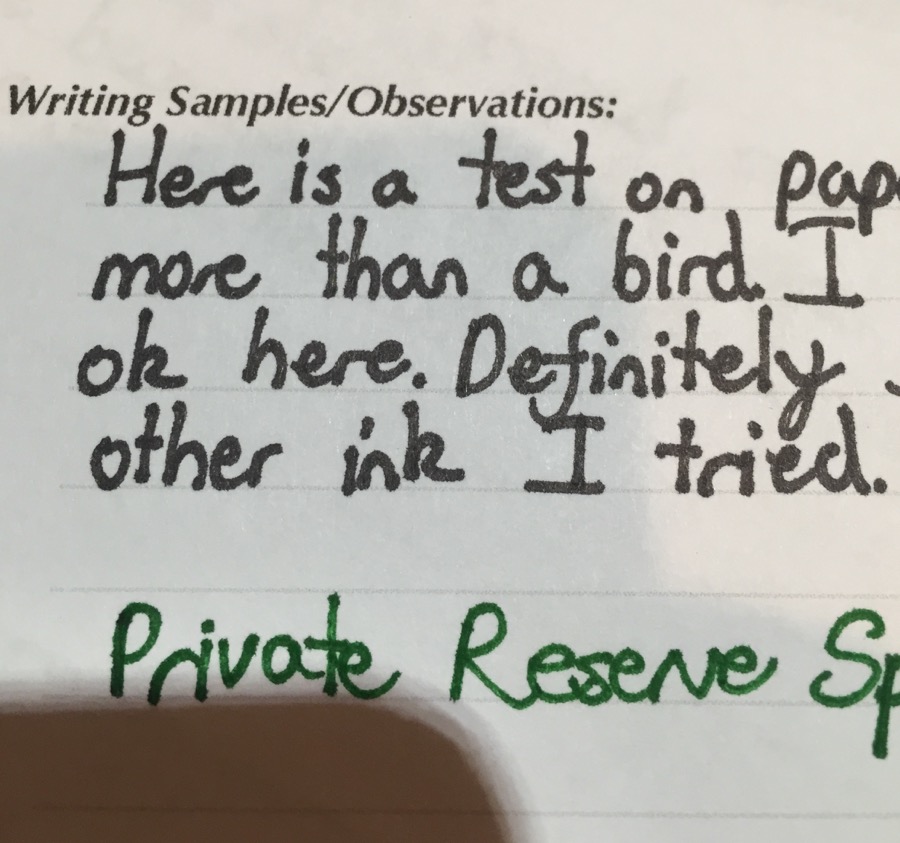 Writing Samples/Observations:
Here is a test on
more than a bird. I
ok here. Definitely
other ink I tried.
Private Reserve